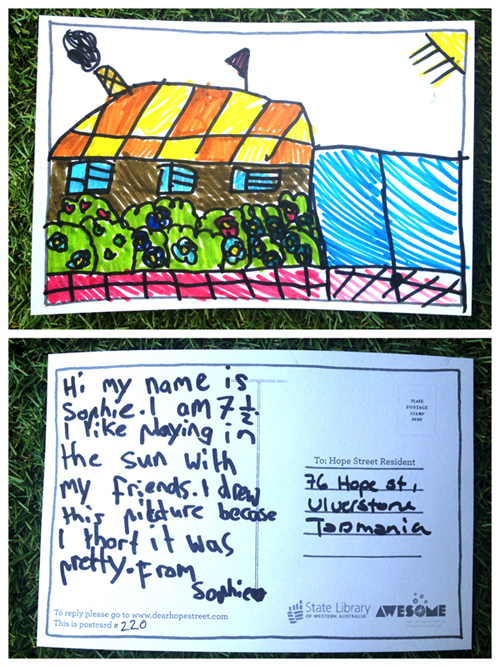 Hi my name is
Sophie. I am 7 ½.
I like playing in
the sun with
my friends. I drew
this pikture becase
I thort it was
pretty. From
Sophie
PLACE
POSTAGE
STAMP
HERE
To: Hope Street Resident
76 Hope st,
Ulverstone
Tasmania
To reply please go to www.dearhopestreet.com
This is postcard # 220
State Library
OF WESTERN AUSTRALIA
AWESOME